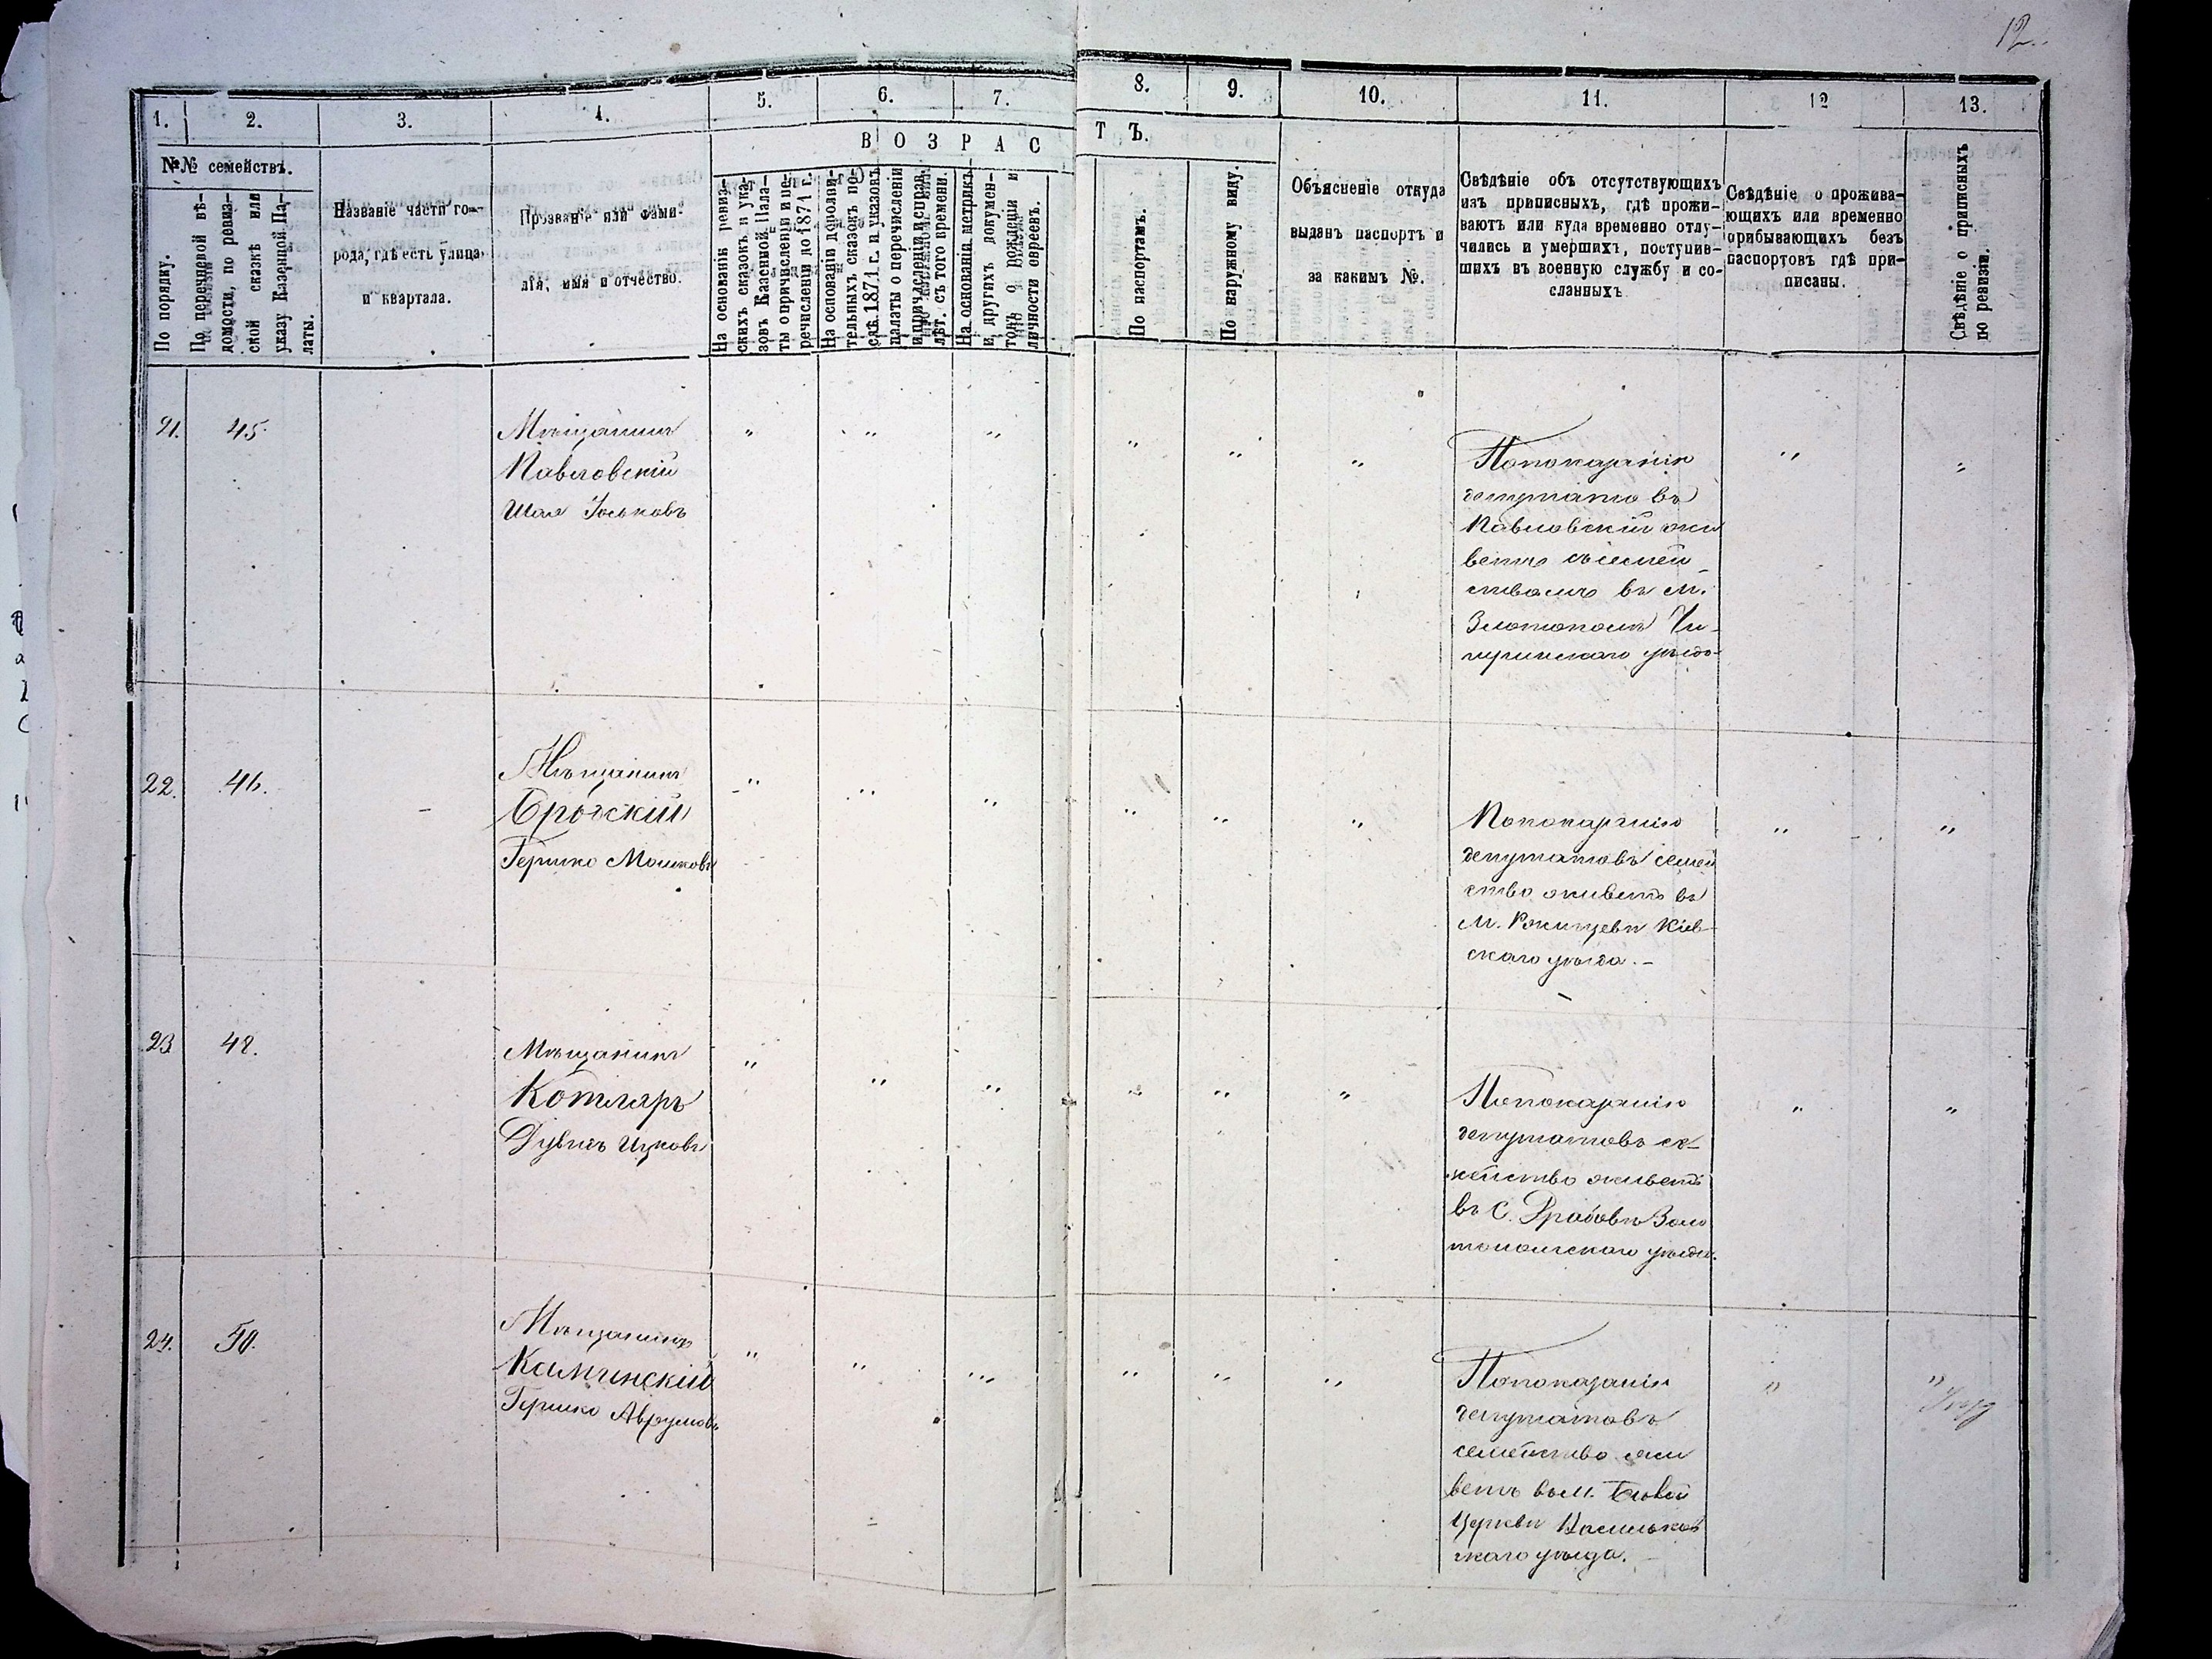 12.
1. 2. 3. 4. 5. 6. 7. 8. 9. 10. 11. 12 13.
№№ семействъ.
По порядку.
По перечневой вѣ-
домости, по ревиз-
ской сказкѣ или
указу Казенной Па-
латы.
Названіе части го-
рода, гдѣ есть улица
и квартала.
Прозваніе или фами-
лія, имя и отчество.
ВОЗРАСТЪ.
На основаніи ревиз-
скихъ сказокъ и ука-
зовъ Казенной Пала-
ты о причисленіи и пе-
речисленіи до 1871 г.
На основаніи дополни-
тельныхъ сказокъ по-
слѣ 1871 г. и указовъ
палаты о перечисленіи
и причисленіи и справ.
лѣт. съ того времени.
На основаніи метрикъ
и другихъ докумен-
товъ о рожденіи и
личности евреевъ.
По паспортамъ.
По наружному виду.
Объясненіе откуда
выданъ паспортъ и
за какимъ №.
Свѣдѣніе объ отсутствующихъ
изъ приписныхъ, гдѣ прожи-
ваютъ или куда временно отлу-
чились и умершихъ, поступив-
шихъ въ военную службу и со-
сланныхъ
Свѣдѣніе о прожива-
ющихъ или временно
прибывающихъ безъ
паспортовъ гдѣ при-
писаны.
Свѣдѣніе о приписныхъ
по ревизіи.
21. 45.
Мѣщанинъ
Павловскій
Шая Іоськовъ
" " " " " " " "
Попоказанію
депутатовъ
Павловскій жи
ветъ съ семей-
ствомъ въ м.
Златополѣ Чи-
гиринскаго уѣзда
22. 46.
Мѣщанинъ
Бродскій
Гершко Мошковъ
" " " " " " " "
Попоказанію
депутатовъ семей
ство живетъ въ
м. Ржищевѣ Кіев-
скаго уѣзда. -
23 48.
Мѣщанинъ
Котляръ
Дувидъ Ицковъ
" " " " " " " "
Попоказанію
депутатовъ се-
мейство живетъ
въ С. Драбовѣ Золо
тоношскаго уѣзда.
24. 50.
Мѣщанинъ
Каминскій
Гершко Аврумовъ
" " " " " " " "
Попоказанію
депутатовъ
семейство жи
ветъ въ м. Бѣлой
Церкви Васильков
скаго уѣзда.